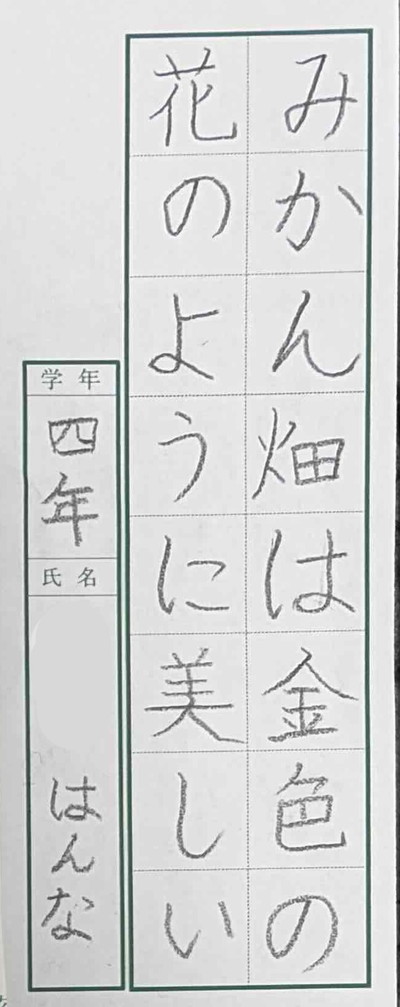 みかん畑は金色の
花のように美しい
学年
四年
氏名
はんな